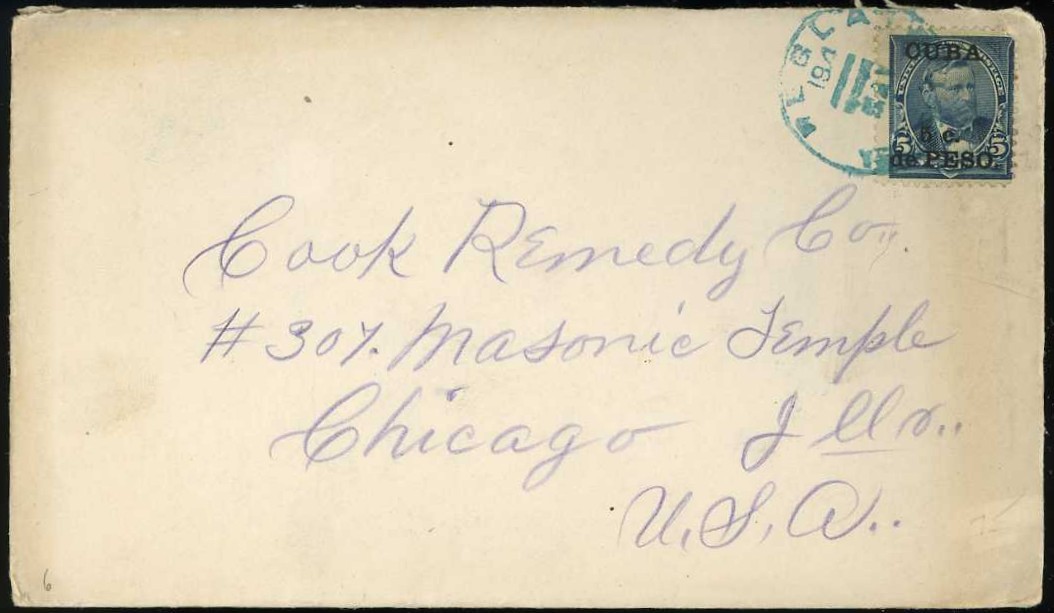 CUBA
5 c.
5 5
de PESO.
Cook Remedy Co.
#307. Masonic Temple
Chicago Ills..
U.S.A..
6